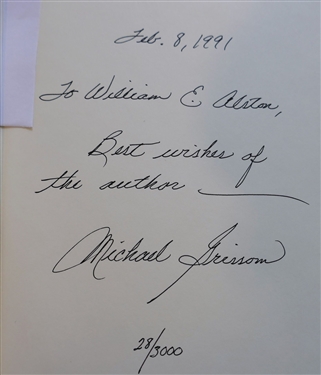 Feb. 8, 1991
To William E. Alston,
Best wishes of
the author
Michael Grissom
28/3000